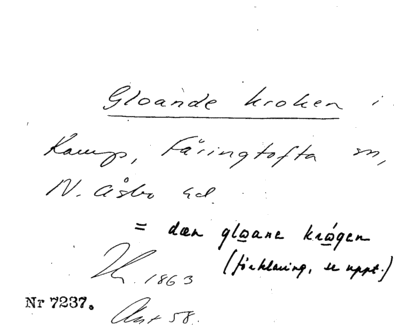 Gloande kroken i
Kamp, Fåringtofta sn,
N. Åsbo hd.
= dæn gloane krogen
(förklaring, se uppt.)
1863
Nr 7237.
58.